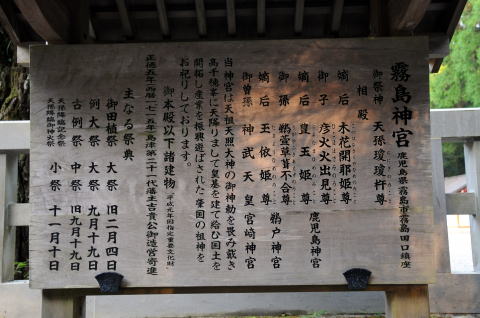 霧島神宮 鹿児島県霧島市霧島田口鎮座
御祭神 天孫瓊瓊杵尊
相殿
嫡后 木花開耶姫尊
御子 彦火火出見尊 鹿児島神宮
嫡后 豊玉姫尊
御孫 鵜葺草葺不合尊 鵜戸神宮
嫡后 玉依姫尊
御曽孫 神武天皇 宮崎神宮
当神宮は天祖天照大神の御神勅を畏み戴き
高千穂峯に天降りまして皇基を建て給ひ国土を
開拓し産業を振興遊ばされた肇国の祖神を
お祀りしております。
御本殿以下諸建物 平成元年国指定重要文化財
正徳五年西暦一七一五年島津第二十一代藩主吉貴公御造営寄進
主なる祭典
御田植祭 大祭 旧二月四日
例大祭 大祭 九月十九日
古例祭 中祭 旧九月十九日
天孫降臨記念祭
天孫降臨御神火祭 小祭 十一月十日